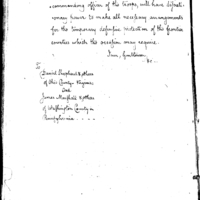 commanding officer of the Works, will have discretionary power to make all necessary arrangements
for the temporary defensive protection of the frontier
counties which the occasion may require.
I am, Gentlemen,
&c.
To
David Shepherd & others
of Ohio County Virginia
and
James Marshall & others
of Washington County in
Pennsylvania